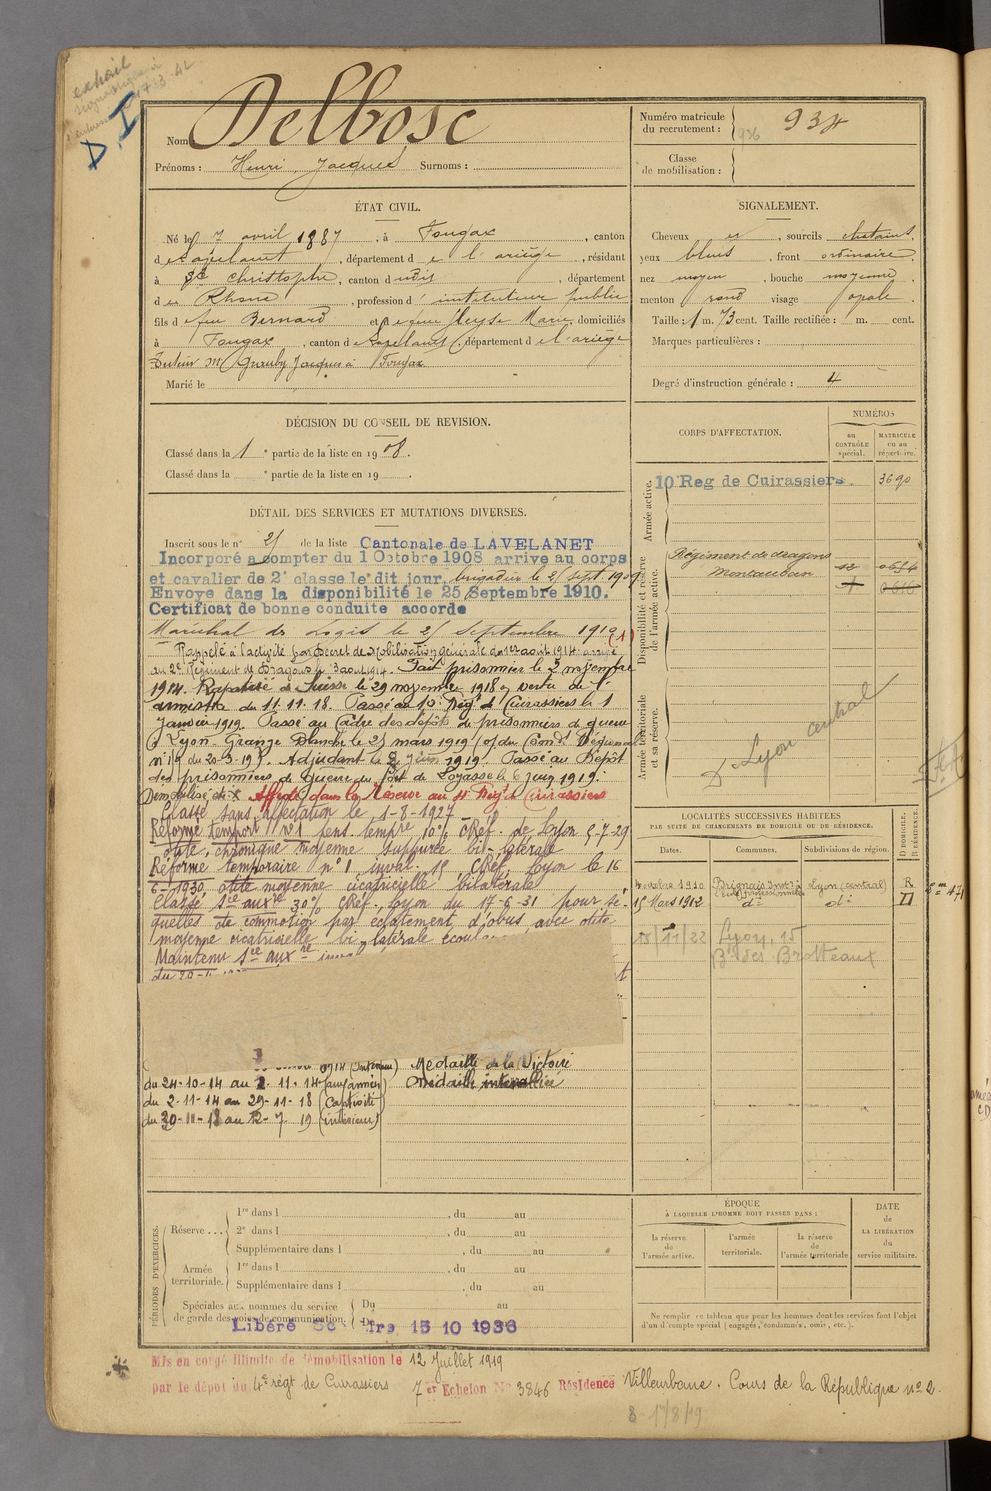 extrait
17-3-42
D.I
Nom Delbosc
Prénoms : Henri Jacques Surnoms :
Numéro matricule du recrutement : 936 934
Classe de mobilisation :
ÉTAT CIVIL.
Né le 7 avril 1887, à Fougax, canton
de Lavelanet, département de l'ariège, résidant
à St christophe, canton dudit, département
du Rhône, profession d'instituteur public
fils de feu Bernard et de feue Meyse Marie, domiciliés
à Fougax, canton de Lavelanet, département de l'ariège
Tuteur Mr Grauby Jacques à Fougax
Marié le
SIGNALEMENT.
Cheveux et, sourcils chatains,
yeux bleus, front ordinaire,
nez moyen, bouche moyenne
menton rond visage opale
Taille : 1 m. 73 cent. Taille rectifiée : m. cent.
Marques particulières :
Degré d'instruction générale : 4
DÉCISION DU CONSEIL DE REVISION.
Classé dans la 1 e partie de la liste en 1908.
Classé dans la e partie de la liste en 19
CORPS D'AFFECTATION.
NUMÉROS
au CONTRÔLE spécial.
MATRICULE ou au répertoire.
Armée active.
10e Reg de Cuirassiers. 3690
Disponibilité et réserve de l'armée active.
Régiment de dragons
Montauban
Armée territoriale et sa réserve.
D. Lyon central
DÉTAIL DES SERVICES ET MUTATIONS DIVERSES.
Inscrit sous le n° 25 de la liste Cantonale de LAVELANET
Incorporé a compter du 1 Octobre 1908 arrive au corps
et cavalier de 2e classe le dit jour, brigadier le 25 sept. 1909
Envoye dans la disponibilité le 25 Septembre 1910.
Certificat de bonne conduite accorde
Maréchal des Logis le 25 septembre 1910 (1)
Rappelé à l'activité par Décret de Mobilisation générale du 1er août 1914. arrivé
au 2e Régiment de Dragons le 3 aout 1914. Fait prisonnier le 2 novembre
1914. Rapatrié de Suisse le 29 novembre 1918 en vertu de l'
armistice du 11.11.18. Passé au 10e Régt de Cuirassiers le 1
Janvier 1919. Passé au Cadre des dépôts de prisonniers de guerre
à Lyon-Grange Blanche le 25 mars 1919 (
n° 19 du 20-3-19). Adjudant le 2 Juin 1919. Passé au Dépôt
des prisonniers de Guerre du fort de Loyasse le 6 juin 1919.
Démobilisé Affecté dans la Réserve au 4e Régt de Cuirassiers
Classé sans affectation le 1-8-1927
Réformé tempor. n°1 pens. tempre 10% CRéf. de Lyon 5-7-29
otite chronique moyenne suppurée bi-latérale
Réforme temporaire n°1 inval. 15 CRéf. Lyon le 16
6-1930 otite moyenne cicatricielle bilatérale
Classé sce auxre 30% CRéf. Lyon du 17-6-31 pour sé-
quelles de commotion par éclatement d'obus, avec otite
moyenne cicatricielle bi-latérale
Maintenu sce auxre
0914 (Intérieur) Médaille de la Victoire
du 24-10-14 au 2.11-14 (aux armées) Médaille interalliée
du 2-11-14 au 29-11-18 (Captivité)
du 30-11-18 au 12-7-19 (intérieur)
LOCALITÉS SUCCESSIVES HABITÉES
PAR SUITE DE CHANGEMENTS DE DOMICILE OU DE RÉSIDENCE.
Dates. Communes. Subdivisions de région. D DOMICILE. R RÉSIDENCE.
4 octobre 1910 Brignais Lyon (central) R
15 Mars 1912 do do D
15/11/22 Lyon, 15
Bd des Brotteaux
PÉRIODES D'EXERCICES.
Réserve . . . 1re dans l , du au
2e dans l , du au
Supplémentaire dans l , du au
Armée territoriale. 1re dans l , du au
Supplémentaire dans l , du au
Spéciales aux hommes du service de garde des voies de communication. Du au
Du
Libéré 15 10 1936
ÉPOQUE
À LAQUELLE L'HOMME DOIT PASSER DANS :
la réserve de l'armée active.
l'armée territoriale.
la réserve de l'armée territoriale
DATE de LA LIBÉRATION du service militaire.
Ne remplir ce tableau que pour les hommes dont les services font l'objet
d'un décompte spécial (engagés, condamnés, omis, etc.).
Mis en congé illimité de démobilisation le 12 Juillet 1919
par le dépôt du 4e régt de Cuirassiers 7er Echelon No 3846 Résidence Villeurbanne. Cours de la République no 2.
17/8/19